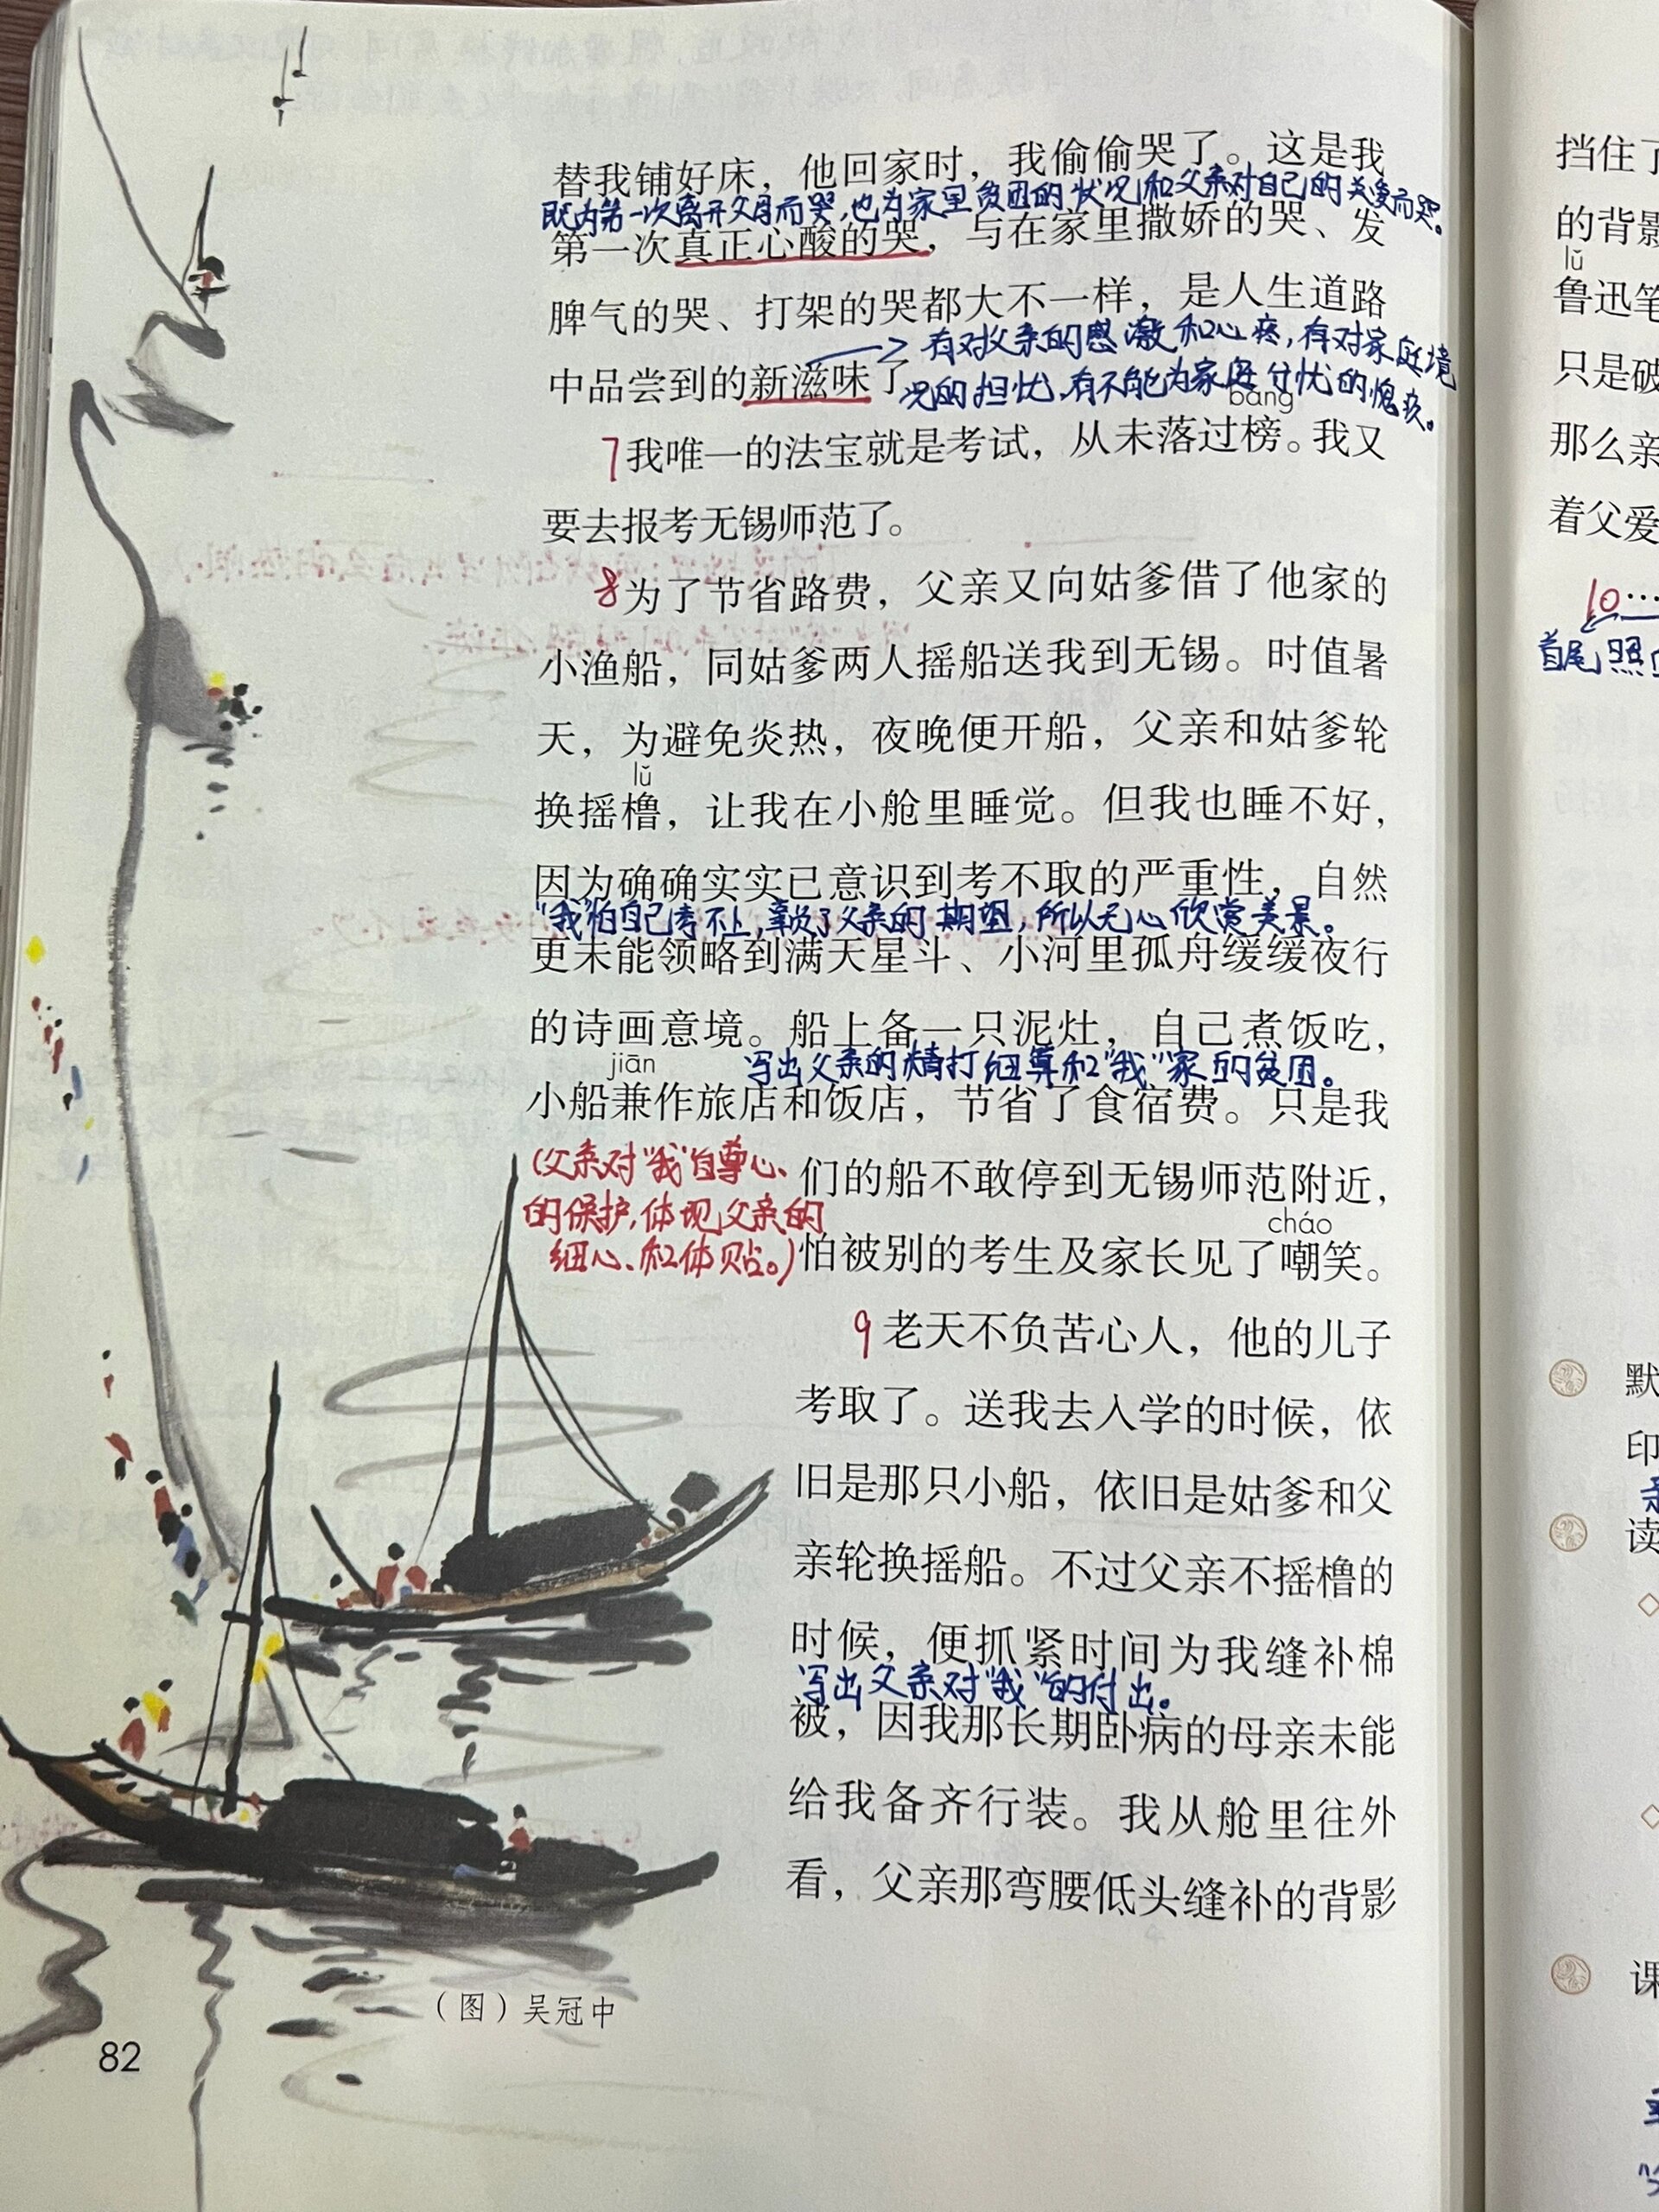 替我铺好床，他回家时，我偷偷哭了。这是我
既为第一次离开父母而哭,也为家里贫困的状况和父亲对自己的关爱而哭。
第一次真正心酸的哭，与在家里撒娇的哭、发
脾气的哭、打架的哭都大不一样，是人生道路
有对父亲的感激和心疼,有对家庭境
中品尝到的新滋味了
况的担忧,有不能为家庭分忧的愧疚。
bǎng
7我唯一的法宝就是考试，从未落过榜。我又
要去报考无锡师范了。
8为了节省路费，父亲又向姑爹借了他家的
小渔船，同姑爹两人摇船送我到无锡。时值暑
天，为避免炎热，夜晚便开船，父亲和姑爹轮
lǔ
换摇橹，让我在小舱里睡觉。但我也睡不好，
因为确确实实已意识到考不取的严重性，自然
"我"怕自己考不上,辜负了父亲的期望,所以无心欣赏美景。
更未能领略到满天星斗、小河里孤舟缓缓夜行
的诗画意境。船上备一只泥灶，自己煮饭吃，
jiān
写出父亲的精打细算和"我"家的贫困。
小船兼作旅店和饭店，节省了食宿费。只是我
(父亲对"我"自尊心、
们的船不敢停到无锡师范附近，
的保护,体现父亲的
cháo
细心、和体贴。)
怕被别的考生及家长见了嘲笑。
9老天不负苦心人，他的儿子
考取了。送我去入学的时候，依
旧是那只小船，依旧是姑爹和父
亲轮换摇船。不过父亲不摇橹的
时候，便抓紧时间为我缝补棉
写出父亲对"我"的付出。
被，因我那长期卧病的母亲未能
给我备齐行装。我从舱里往外
看，父亲那弯腰低头缝补的背影
（图）吴冠中
82
挡住了
的背影
lǔ
鲁迅笔
只是破
那么亲
着父爱
10…
首尾照
默
印
读
课